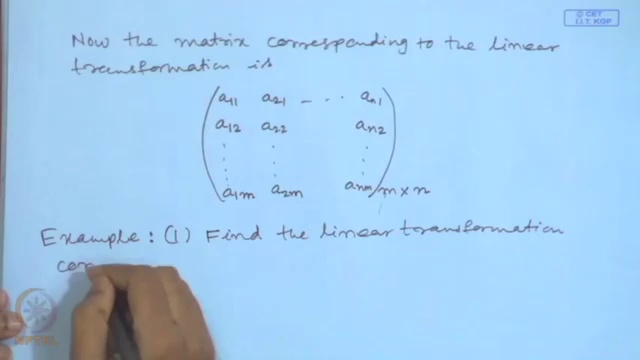 © CET
I.I.T. KGP
Now the matrix corresponding to the linear
transformation is
a11 a21 - . . . an1
a12 a22 an2
a1m a2m anm m×n
Example: (1) Find the linear transformation
cor
NPTEL